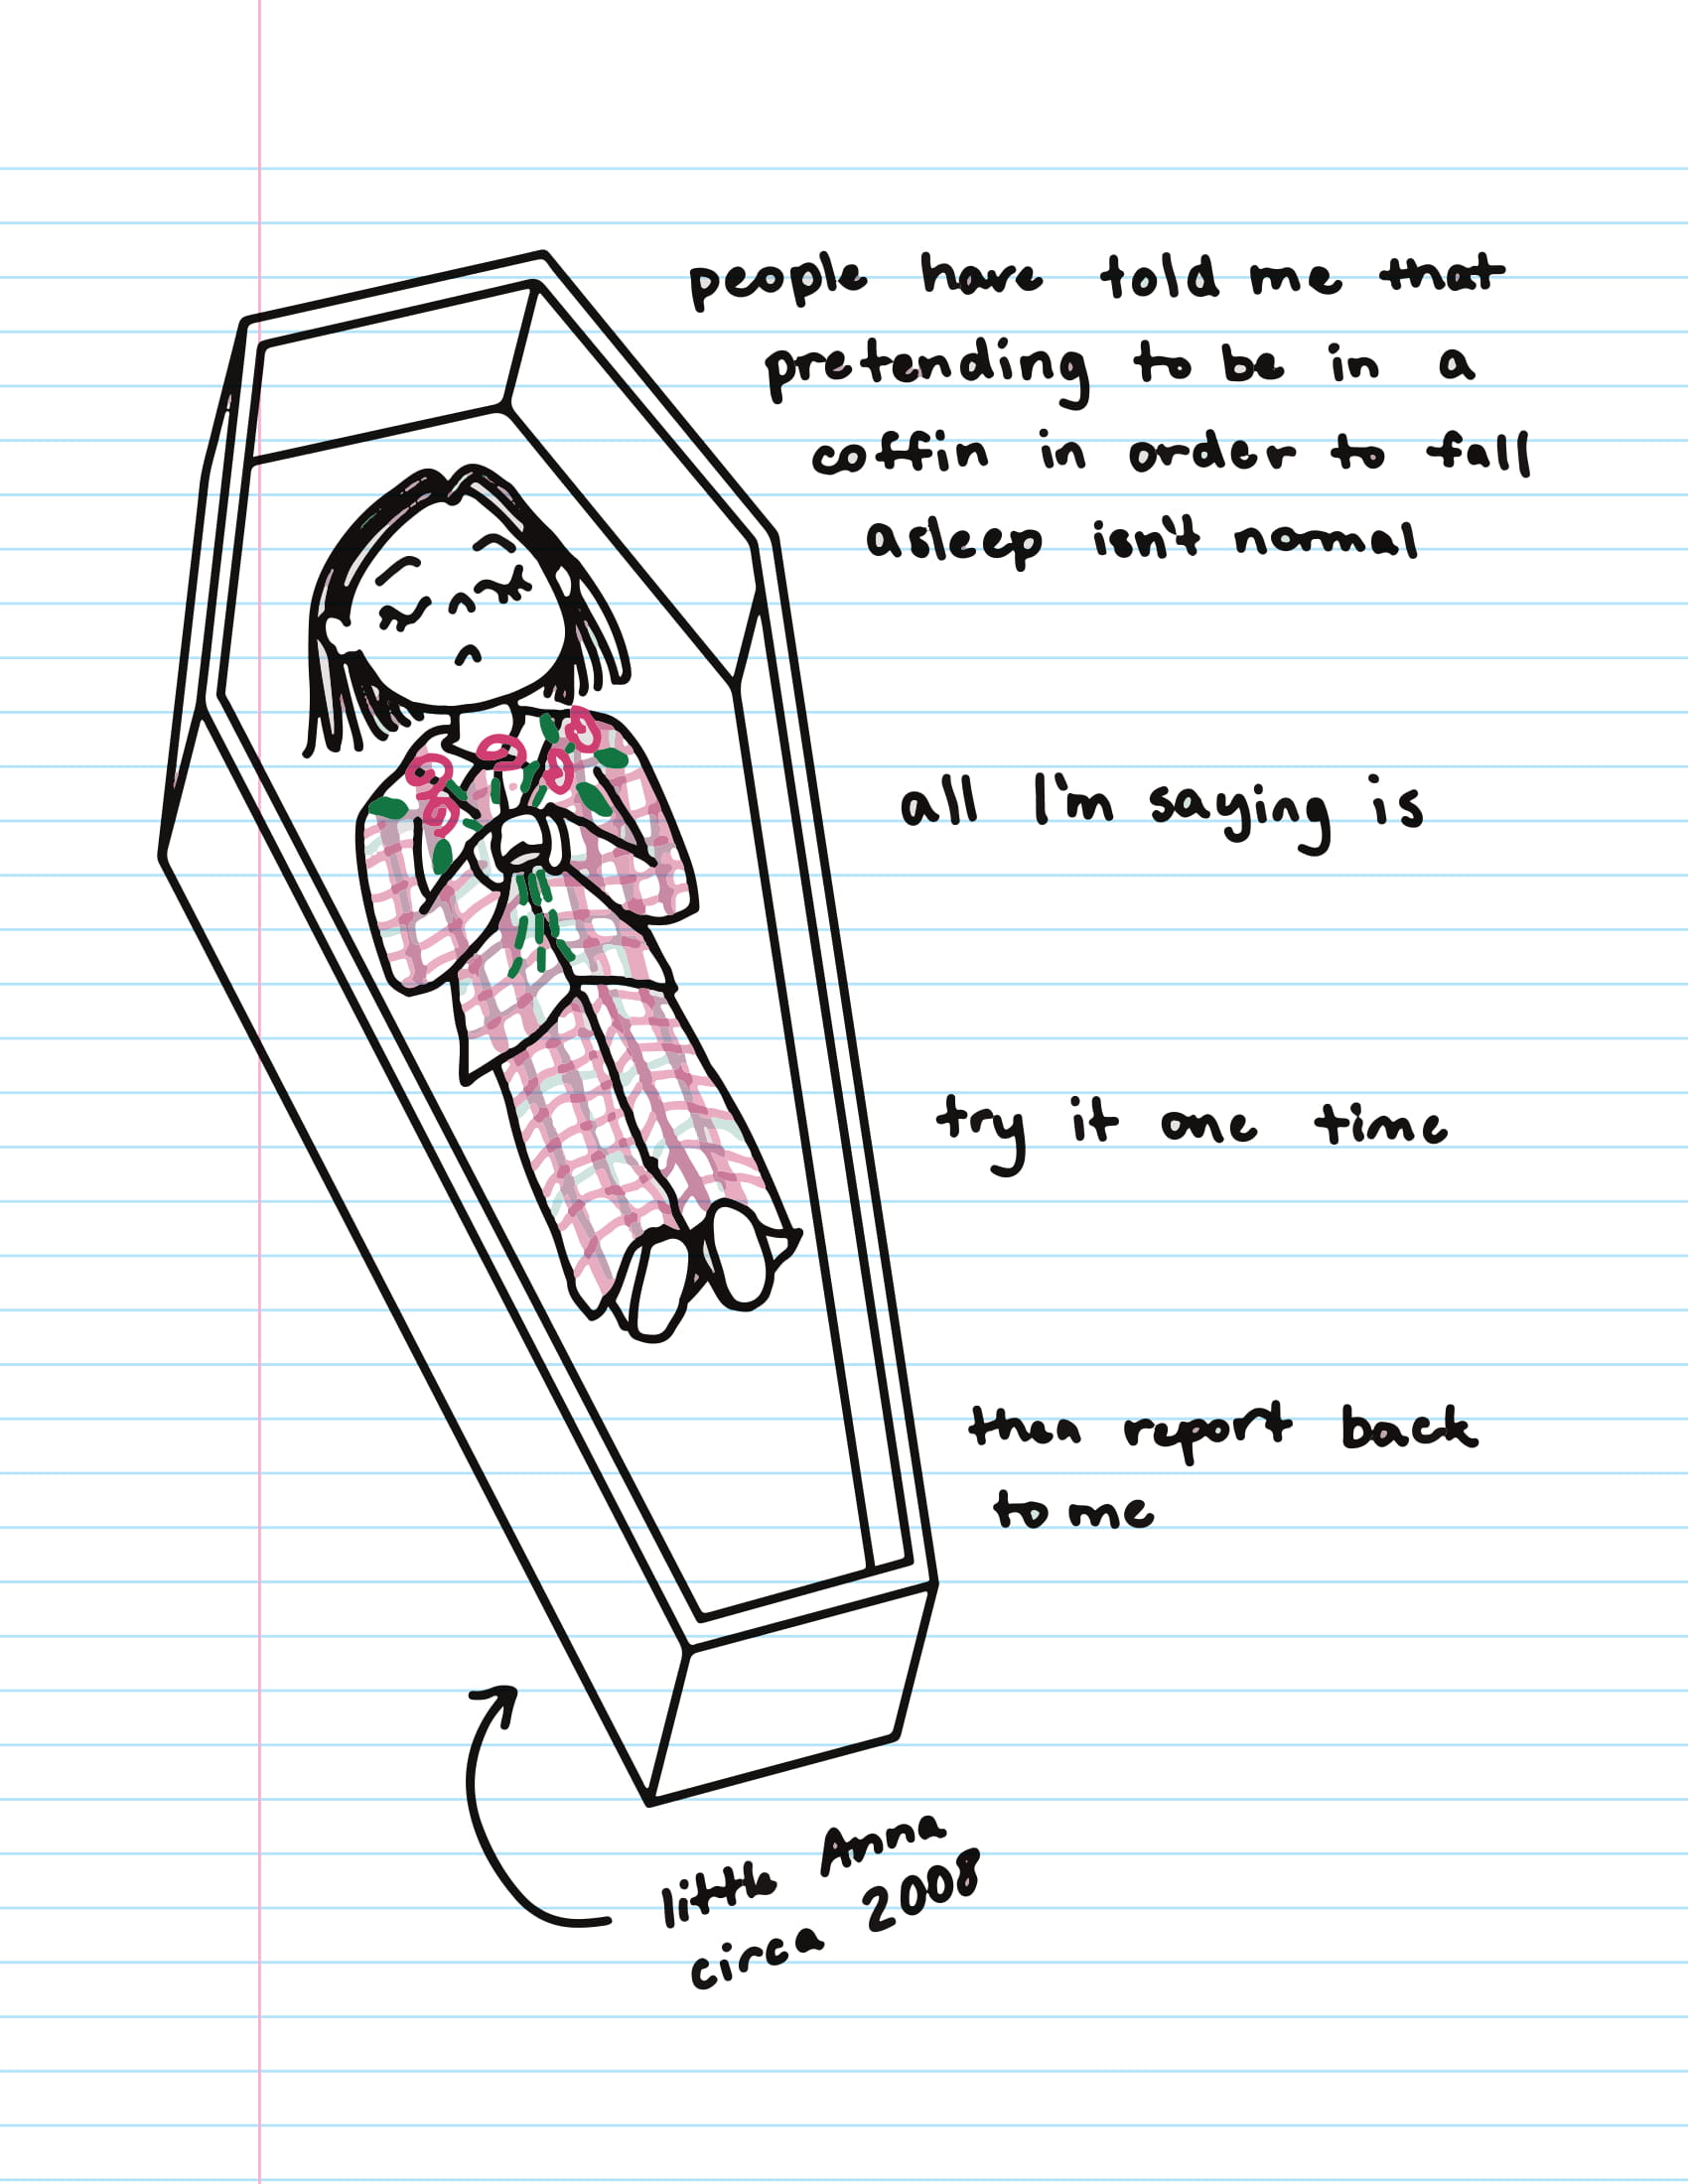 people have told me that
pretending to be in a
coffin in order to fall
asleep isn't normal
all I'm saying is
try it one time
then report back
to me
little Anna
circa 2008